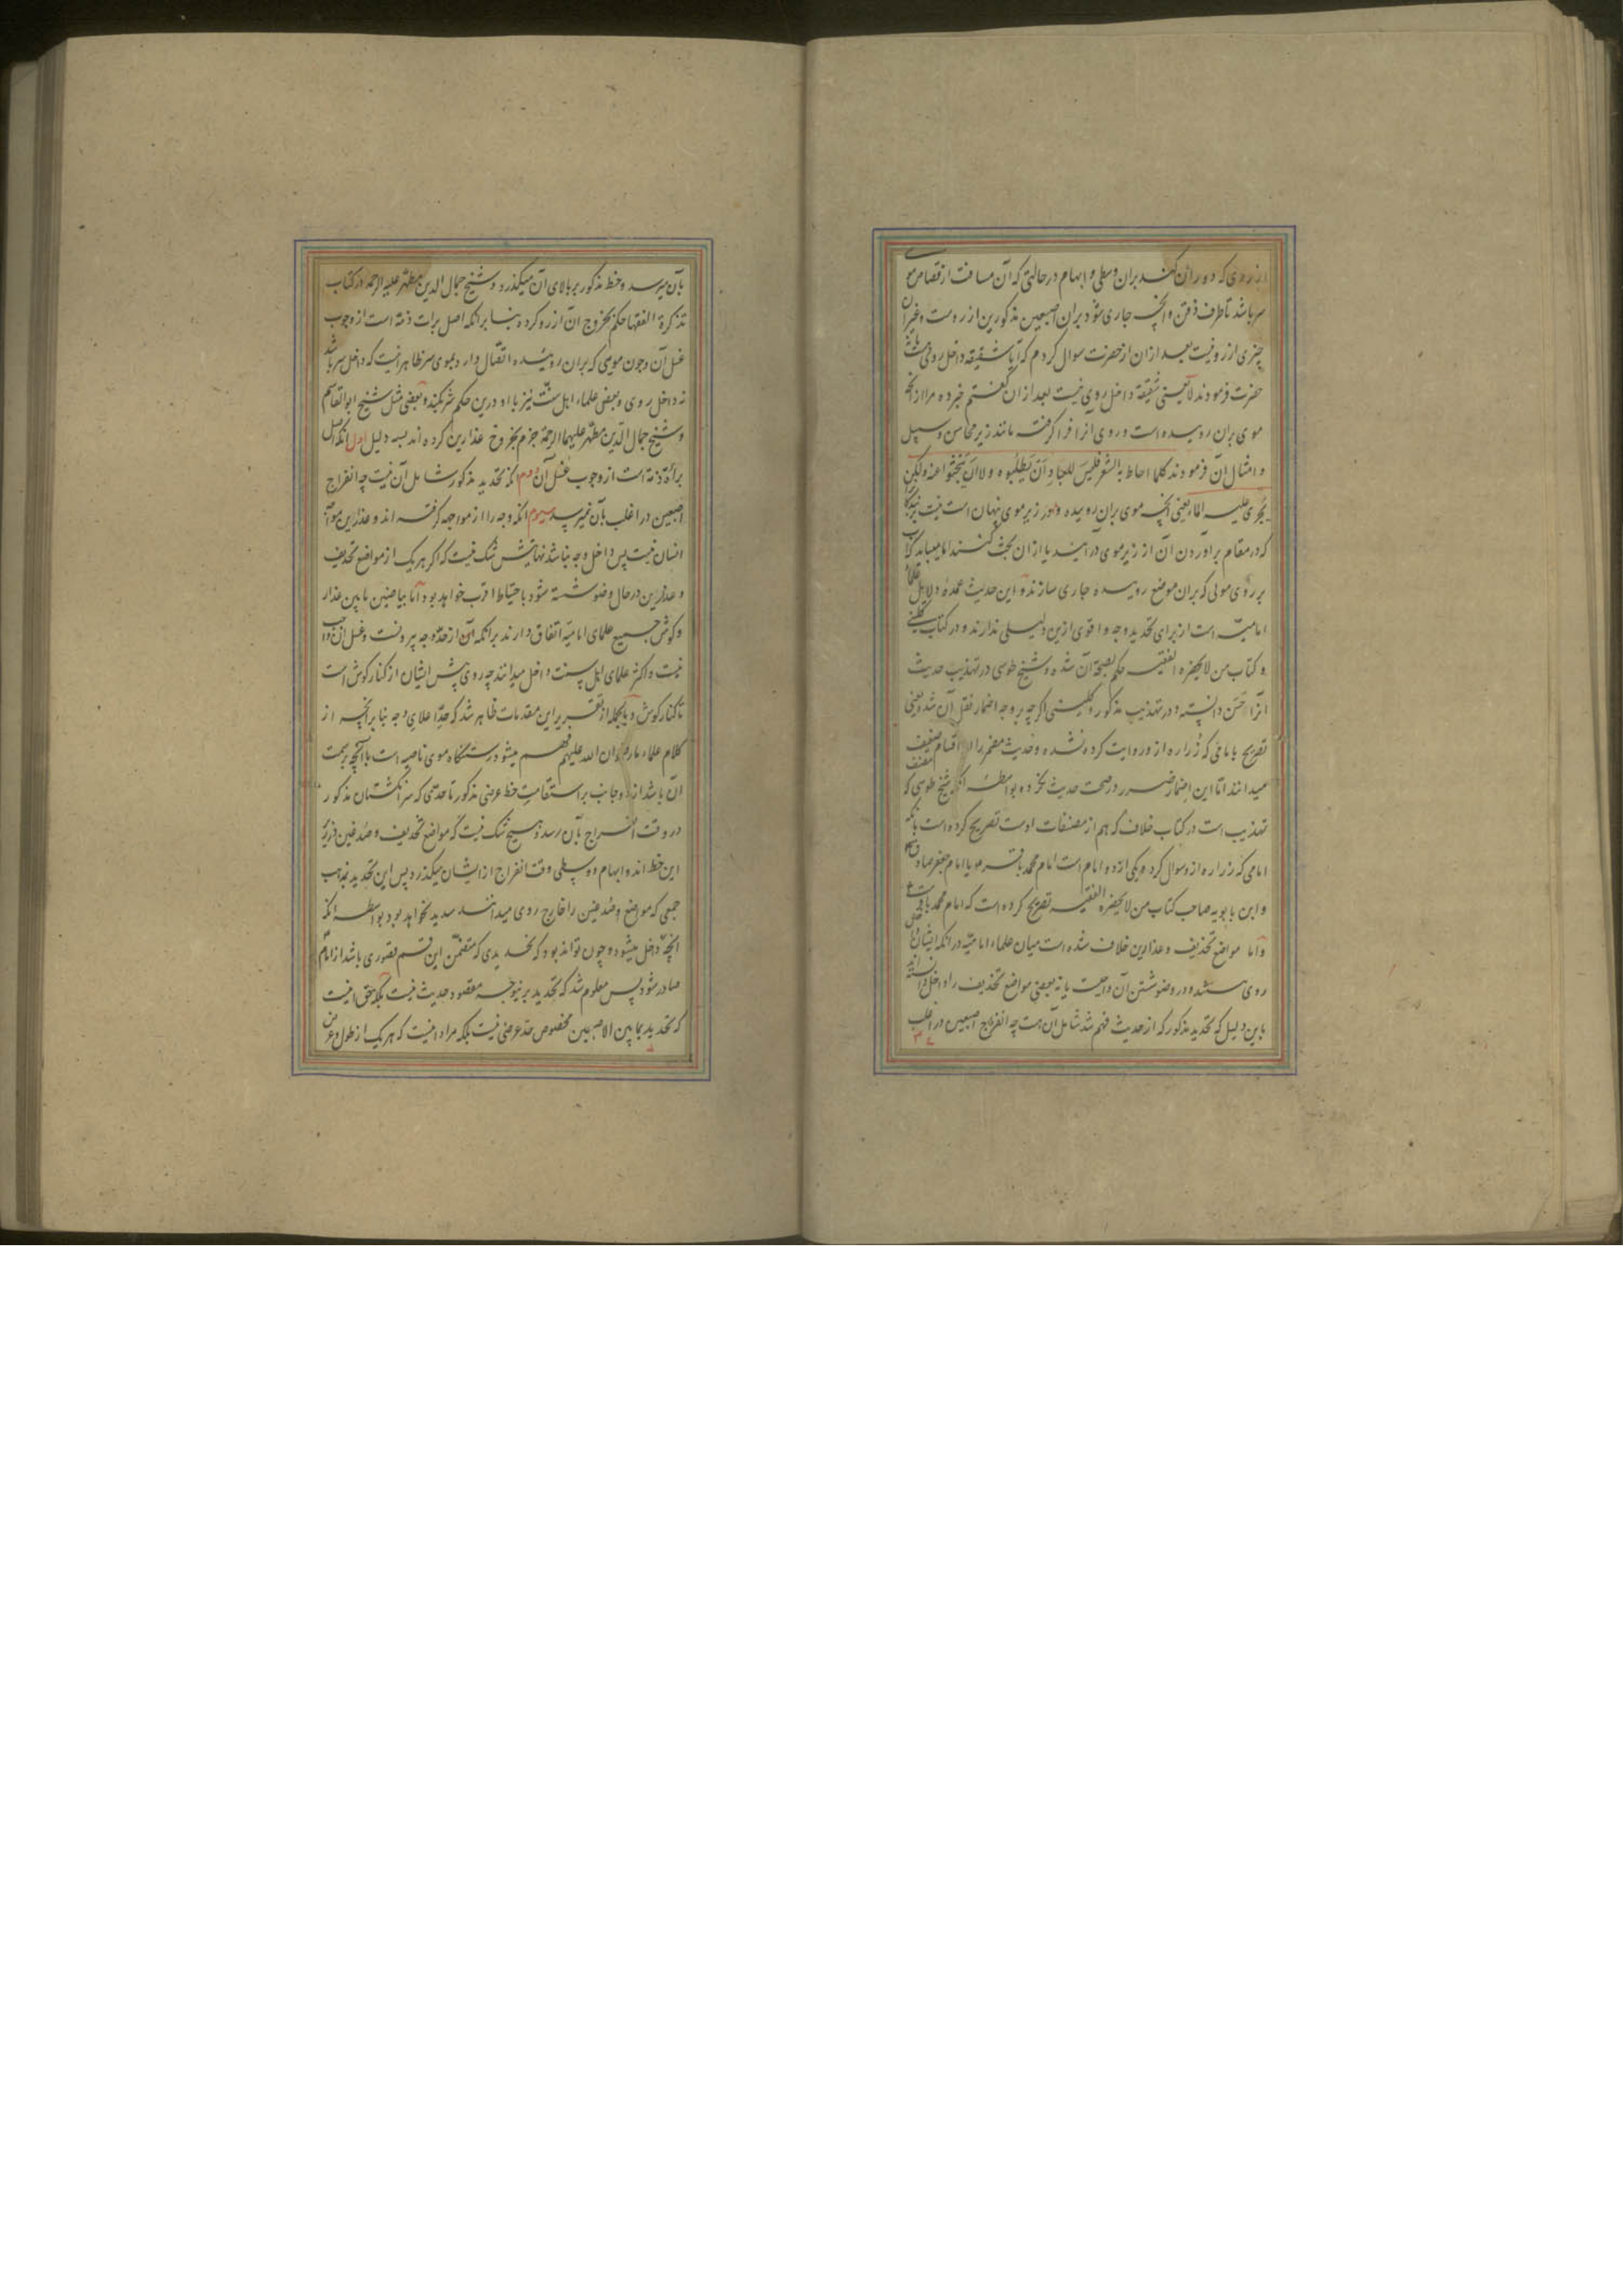 از روی که دوران کند بران وسطی و ابهام در حالتی که آن مسافت از قصاص موی
سر باشد تا طرف ذقن و آنچه جاری شود بران اصبعین مذکورین از روست و غیر آن
چیزی از رو نیست بعد از ان از حضرت سوال کردم که آیا شقیقه داخل روی هست
حضرت فرمودند لا یعنی شقیقه داخل روی نیست بعد از ان گفتم خبر ده مرا از آنچه
موی بران روییده است و روی آنرا فرا گرفته مانند زیر محاسن و سبیل
و امثال آن فرمودند کلما احاط به الشعر فلیس للعباد ان یطلبوه ولا ان یبحثوا عنه ولکن
یجری علیه الماء یعنی آنچه موی بران روییده و در زیر موی نهان است نیست بر بندگان
که در مقام برآوردن آن از زیر موی درآیند یا از ان بحث کنند اما میباید که آب
بر روی موی که بران موضع روییده جاری سازند و این حدیث عمده دلایل علماء
امامیه است از برای تحدید وجه و اقوی ازین دلیلی ندارند و در کتاب کلینی
و کتاب من لا یحضره الفقیه حکم بصحة آن شده و شیخ طوسی در تهذیب حدیث
آنرا حسن دانسته و در تهذیب مذکور و کلینی اگر چه بر وجه اضمار نقل آن شده یعنی
تصریح بامامی که زراره از و روایت کرده نشده و حدیث مضمر را از اقسام ضعیف
میدانند اما این اضمار ضرر در صحت حدیث نکرده بواسطه آنکه شیخ طوسی که مصنف
تهذیب است در کتاب خلاف که هم از مصنفات اوست تصریح کرده است بآنکه
امامی که زراره از و سوال کرد و یکی از دو امام است امام محمد باقر یا امام جعفر صادق
و ابن بابویه صاحب کتاب من لا یحضره الفقیه تصریح کرده است که امام محمد باقر است
و اما مواضع تحذیف و عذارین خلاف شده است میان علماء امامیه در آنکه ایشان داخل
روی هستند و در وضو شستن آن واجبست یا نه بعضی مواضع تحذیف را داخل دانسته اند
باین دلیل که تحدید مذکور که از حدیث فهم شد شامل آن هست چه انفراج اصبعین در اغلب
بآن میرسد و خط مذکور بر بالای آن میگذرد و شیخ جمال الدین مطهر علیه الرحمه در کتاب
تذکرة الفقها حکم بخروج آن از رو کرده بنا بر آنکه اصل برات ذمه است از وجوب
غسل آن و چون مویی که بران روییده اتصال دارد بموی سر ظاهر اینست که داخل سر باشد
نه داخل روی و بعضی علماء اهل سنت نیز با او درین حکم شریکند و بعضی مثل شیخ ابوالقاسم
و شیخ جمال الدین مطهر علیهما الرحمة جزم بخروج عذارین کرده اند بسه دلیل اول آنکه اصل
براءة ذمه است از وجوب غسل آن دوم آنکه تحدید مذکور شامل آن نیست چه انفراج
اصبعین در اغلب بآن نمیرسد سیوم آنکه وجه را از مواجهه گرفته اند و عذارین مواجه
انسان نیست پس داخل وجه نباشد نهایتش شک نیست که اگر هر یک از مواضع تحذیف
و عذارین در حال وضو شسته شود باحتیاط اقرب خواهد بود اما بیاضین مابین عذار
و گوش جمیع علمای امامیه اتفاق دارند برانکه آن از حد وجه بیرونست و غسل آن واجب
نیست و اکثر علمای اهل سنت داخل میدانند چه روی پیش ایشان از کنار گوش است
تا کنار گوش و بالجمله از تقریر این مقدمات ظاهر شد که حد اعلای وجه بنا بر آنچه از
کلام علماء ما رضوان الله علیهم فهم میشود رستنگاه موی ناصیه است با آنچه بر سمت
آن باشد از دو جانب بر استقامت خط عرضی مذکور تا حدی که سر انگشتان مذکور
در وقت انفراج بآن رسد و هیچ شک نیست که مواضع تحذیف و صدغین در زیر
این خط اند و ابهام و وسطی وقت انفراج از ایشان میگذرد پس این تحدید بمذهب
جمعی که مواضع و صدغین را خارج روی میدانند سدید نخواهد بود بواسطه آنکه
آنچه داخل میشود و چون تواند بود که تحدیدی که متضمن این قسم قصوری باشد از امام
صادر شود پس معلوم شد که تحدید برینوجه مقصود حدیث نیست بلکه حق اینست
که تحدید بمابین الاصبعین مخصوص حد عرضی نیست بلکه مراد اینست که هر یک از طول و عرض